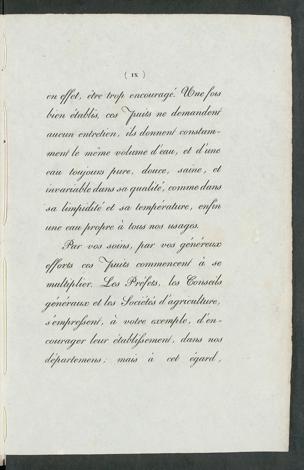 ( IX )
en effet, être trop encouragé. Une fois
bien établis, ces Puits ne demandent
aucun entretien, ils donnent constam-
ment le même volume d'eau, et d'une
eau toujours pure, douce, saine, et
invariable dans sa qualité, comme dans
sa limpidité et sa température, enfin
une eau propre à tous nos usages.
Par vos soins, par vos généreux
efforts ces Puits commencent à se
multiplier. Les Préfets, les Conseils
généraux et les Sociétés d'agriculture,
s'empressent, à votre exemple, d'en-
courager leur établissement, dans nos
départemens; mais à cet égard,